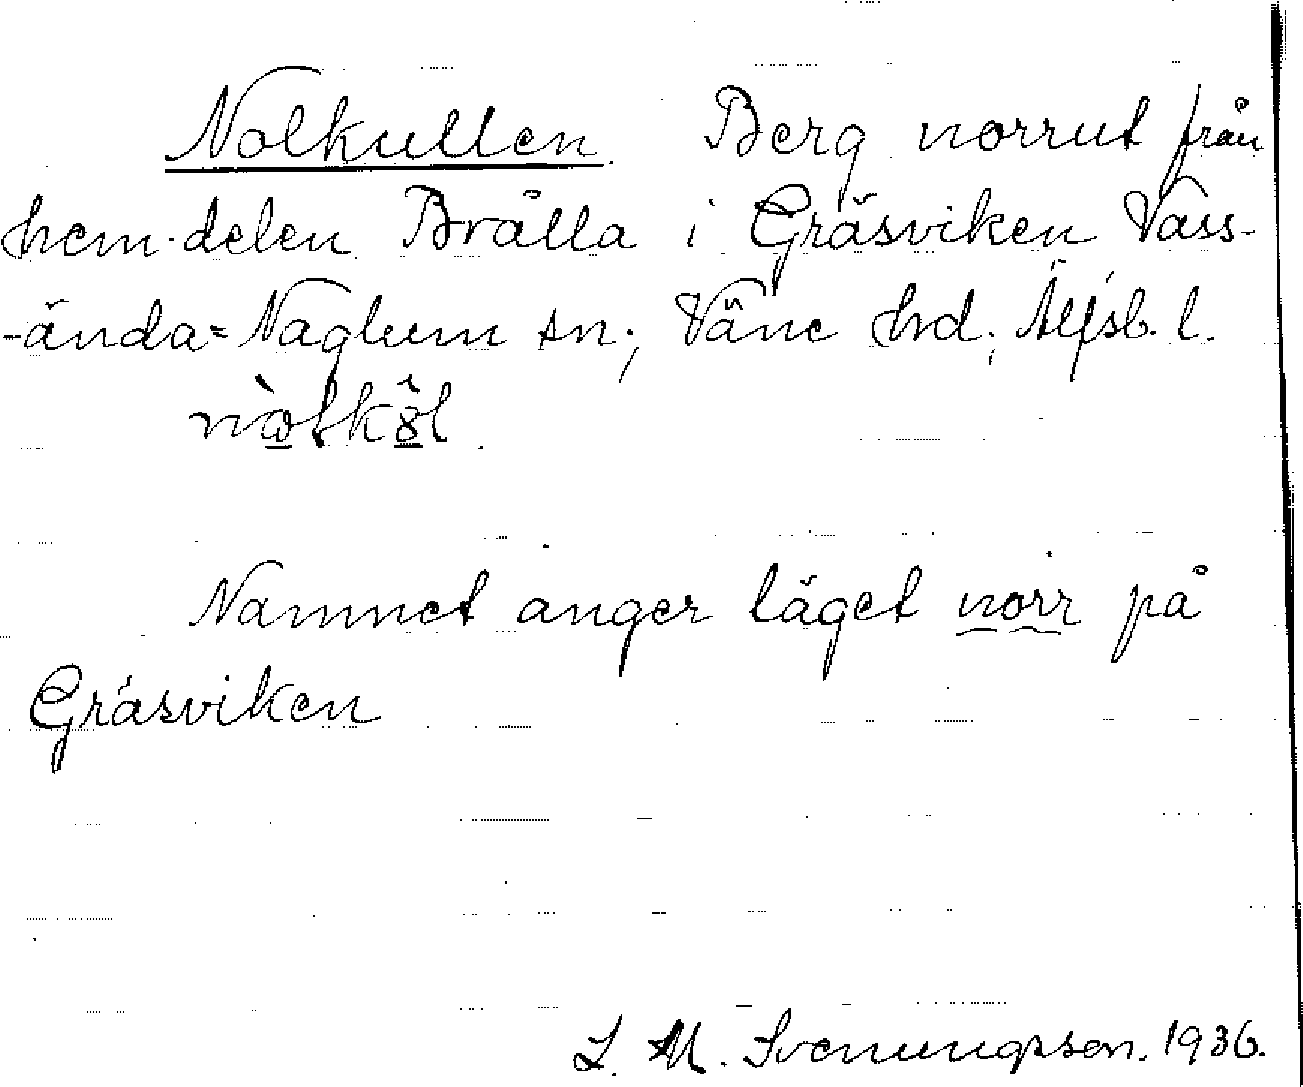 Nolkullen. Berg norrut från
hem.delen Brälla i Gräsviken Vass-
-ända=Naglum sn; Väne hd; Älfsb. l.
Namnet anger läget norr på
Gräsviken
L. M. Svenungsson. 1936.